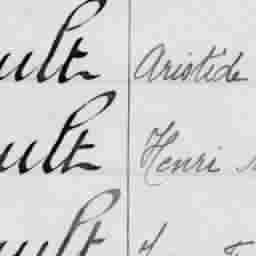 ult Aristide
ult Henri
ult